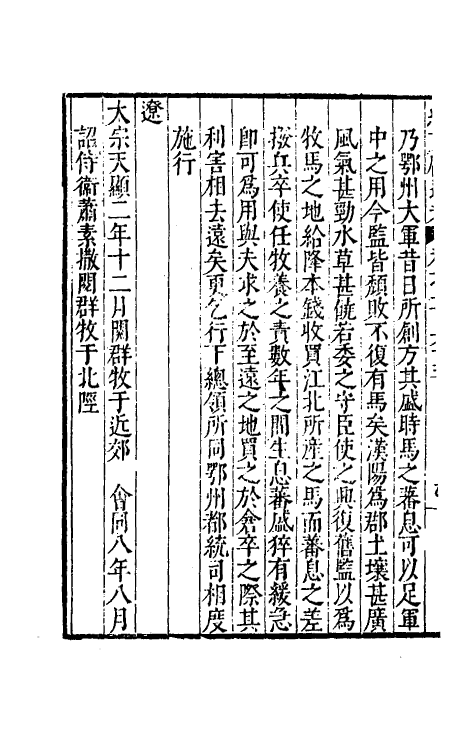 乃鄂州大軍昔日所創方其盛時馬之蕃息可以足軍
中之用今監皆頹敗不復有馬矣漢陽為郡土壤甚廣
風氣甚勁水草甚饒若委之守臣使之興復舊監以為
牧馬之地給降本錢收買江北所產之馬而蕃息之差
撥兵卒使任牧養之責數年之間生息蕃盛猝有緩急
即可為用與夫求之於至遠之地買之於倉卒之際其
利害相去遠矣更乞行下總領所同鄂州都統司相度
施行
遼
太宗天顯二年十二月閱群牧于近郊　會同八年八月
詔侍衛蕭素撒閱群牧于北陘